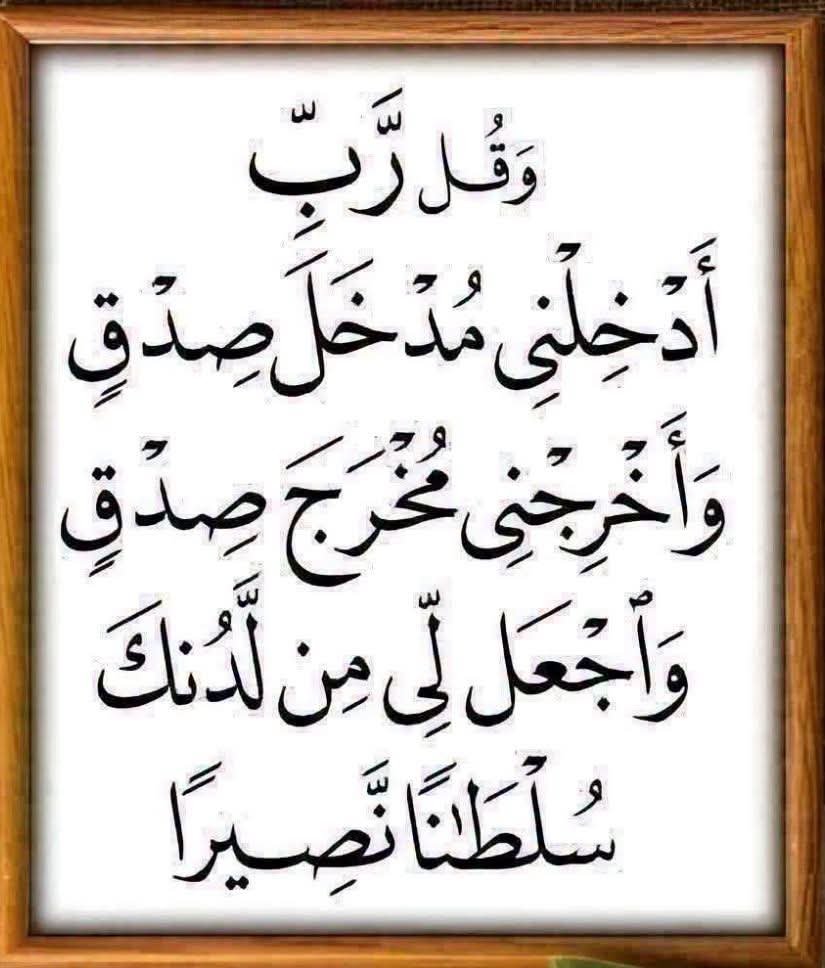 وَقُل رَّبِّ
أَدْخِلْنِى مُدْخَلَ صِدْقٍ
وَأَخْرِجْنِى مُخْرَجَ صِدْقٍ
وَٱجْعَل لِّى مِن لَّدُنكَ
سُلْطَـٰنًا نَّصِيرًا